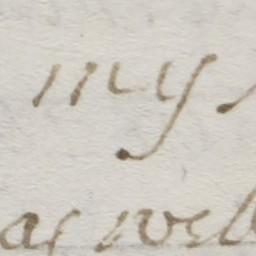 my
as well